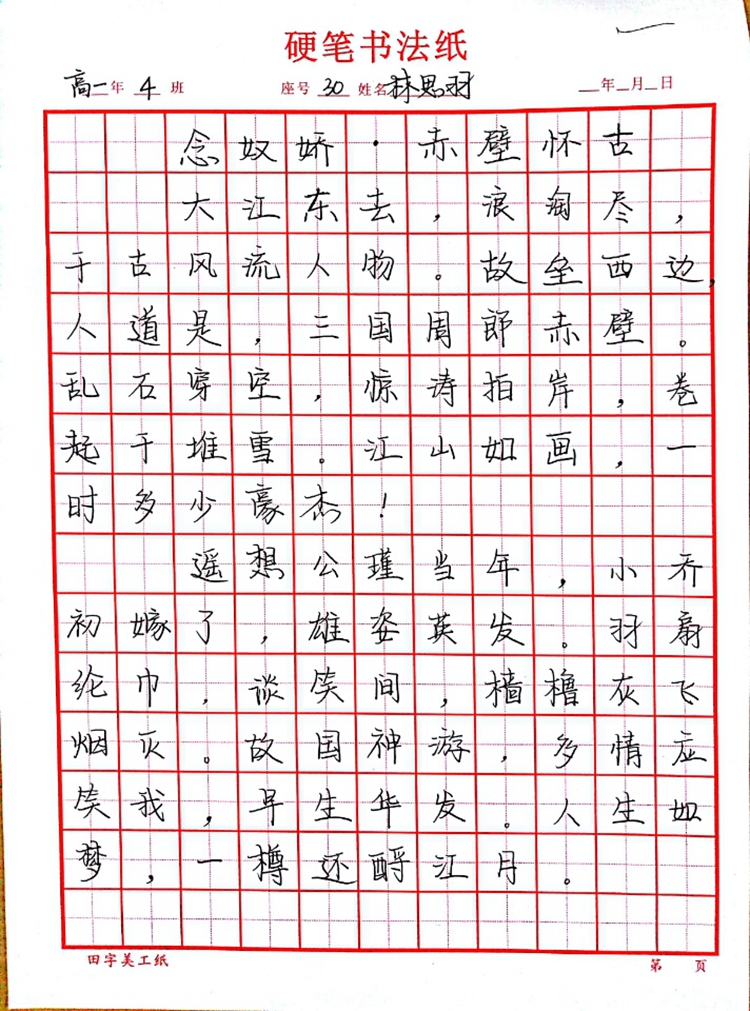 硬笔书法纸
高一年 4 班 座号 30 姓名 林思羽 年 月 日
念奴娇·赤壁怀古
大江东去，浪淘尽，
千古风流人物。故垒西边，
人道是，三国周郎赤壁。
乱石穿空，惊涛拍岸，卷
起千堆雪。江山如画，一
时多少豪杰！
遥想公瑾当年，小乔
初嫁了，雄姿英发。羽扇
纶巾，谈笑间，樯橹灰飞
烟灭。故国神游，多情应
笑我，早生华发。人生如
梦，一樽还酹江月。
田字美工纸 第 页